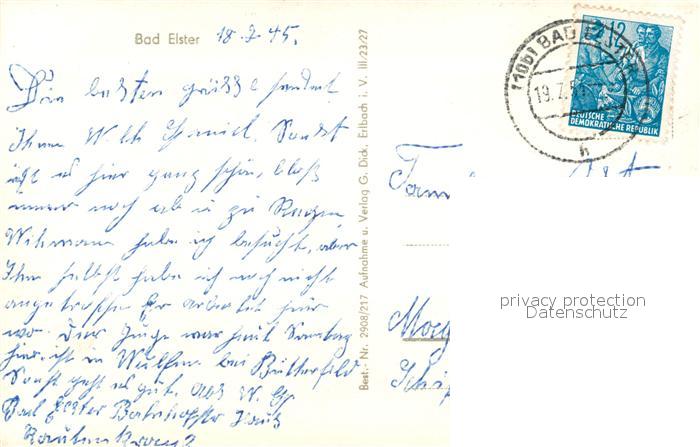 Bad Elster 18.7.45.
Die besten Grüße sendet
Ihnen Willi Schmidt. Sonst
ist es hier ganz schön, bloß
immer noch ab u zu Regen
habe ich besucht, aber
Ihn selbst habe ich noch nicht
angetroffen Er arbeitet hier
wo. Der Junge war heute Sonntag
hier, ist in Wolfen bei Bitterfeld
Sonst geht es gut. Abs W. Sch
Bad Elster Bahnhofstr Haus
Rautenkranz
Best.-Nr. 2908/217 Aufnahme u. Verlag G. Dick, Erlbach i. V. III/23/27
(10b) BAD ELSTER
19.7.5
h
12
DEUTSCHE
DEMOKRATISCHE REPUBLIK
Fam
privacy protection
Datenschutz